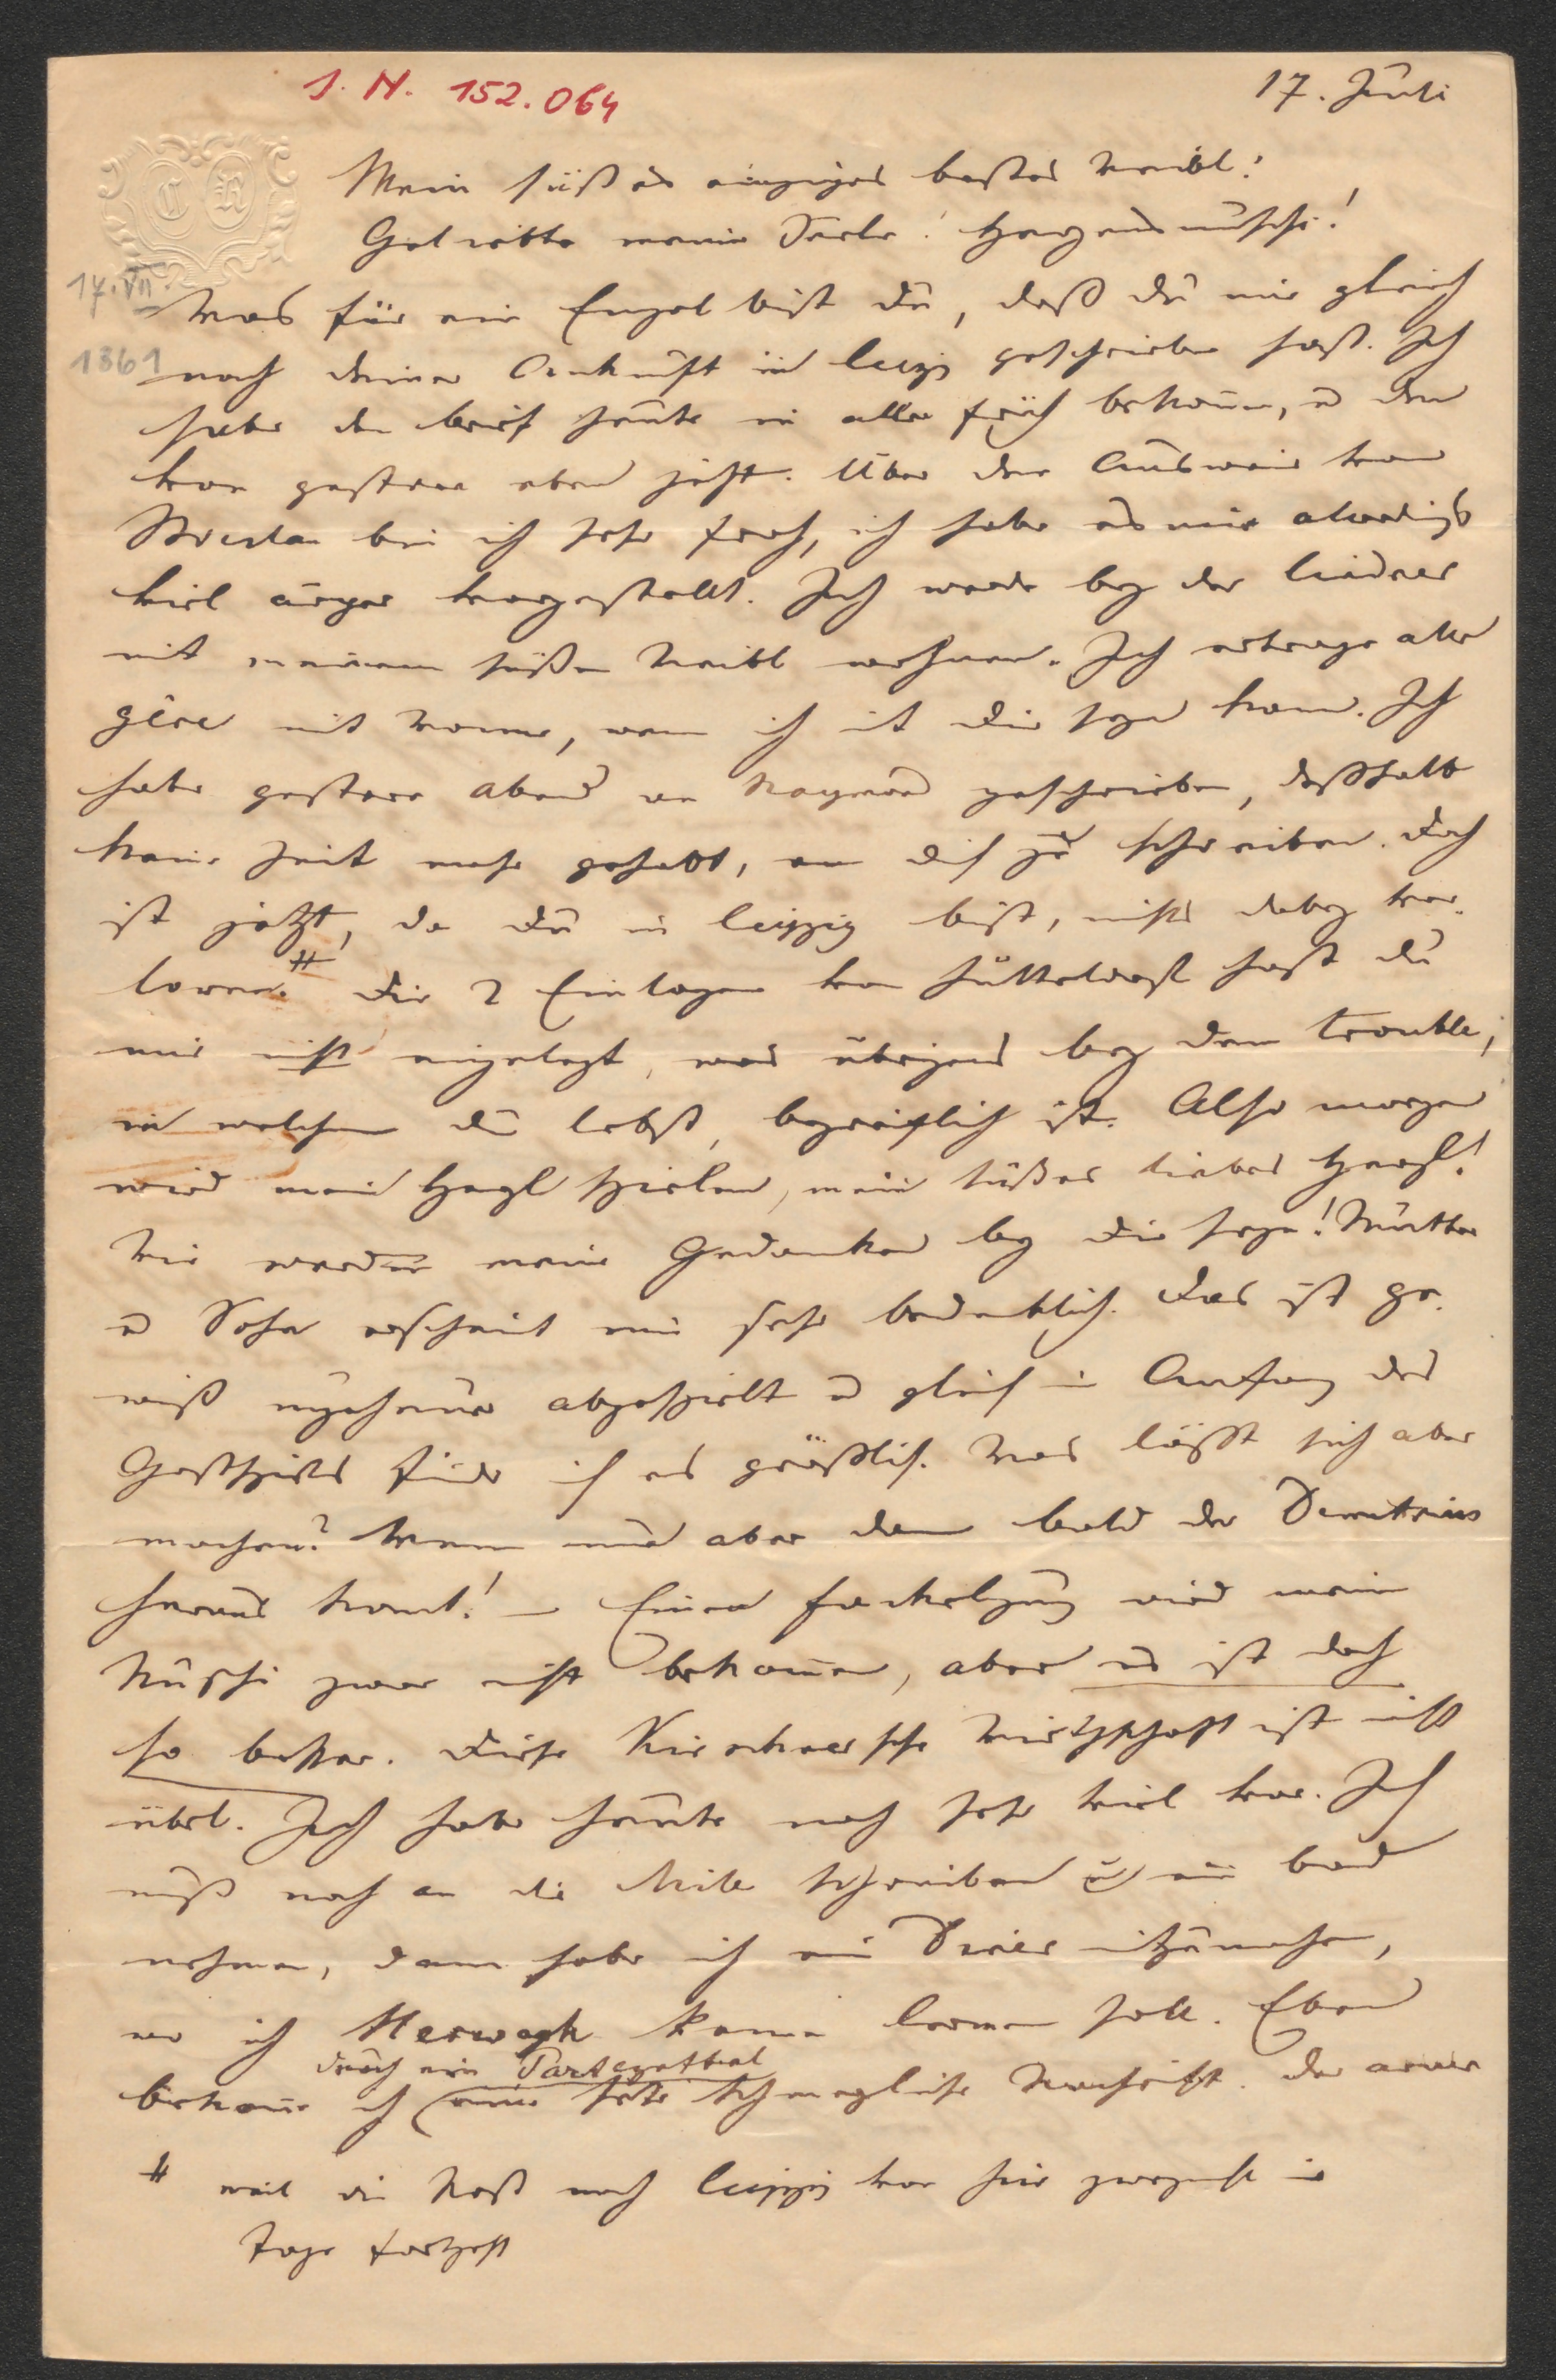 I. N. 152.064
17. Juli
C R
Mein süßes einziges bestes Weibl!
Geliebte meine Seele! Herzensmuschi!
17. VII
Was für ein Engel bist du, daß du mir gleich
1861
nach deiner Ankunft in Leipzig geschrieben hast. Ich
habe den Brief heute in aller früh bekomen, u den
von gestern eben jetzt. Über den Ausweis von
Breslau bin ich sehr froh, ich habe es mir
viel ärger vorgestellt. Ich werde bey der Lindner
mit meinem süßen Weibl wohnen. Ich ertrage alle
gêne mit Wonne, wenn ich mit dir seyn kann. Ich
habe gestern Abend an Raymond geschrieben, deßhalb
keine Zeit mehr gehabt, an dich zu schreiben. Doch
ist jetzt, da du in Leipzig bist, nichts dabey ver-
loren.# Die 2 Einlagen von Hütteldorf hast du
mir nicht eingelegt, was übrigens bey dem trouble,
in welchem du lebst, begreiflich ist. Also morgen
wird mein Herzl spielen, mein süßes liebes Herzl!
Wie werden meine Gedanken bey dir seyn! Mutter
u Sohn erscheint mir sehr bedenklich. Das ist ge-
wiß ungeheuer abgespielt u gleich im Anfang des
Gastspiels finde ich es gräßlich. Was läßt sich aber
machen? Wenn nur aber dann bald der Demetrius
heraus komt! – Einen Fackelzug wird mein
Muschi zwar nicht bekomen, aber es ist doch
so besser. Diese Wirthschaft ist nicht
übel. Ich habe heute noch sehr viel vor. Ich
muß noch an die schreiben u ein Bad
nehmen, dann habe ich ein Diner mitzumachen,
wo ich Herwegh kennen lernen soll. Eben
durch ein
bekome ich eine sehr schmerzliche Nachricht. Der arme
# weil die Post nach Leipzig von hier zweymal im
Tage fortgeht